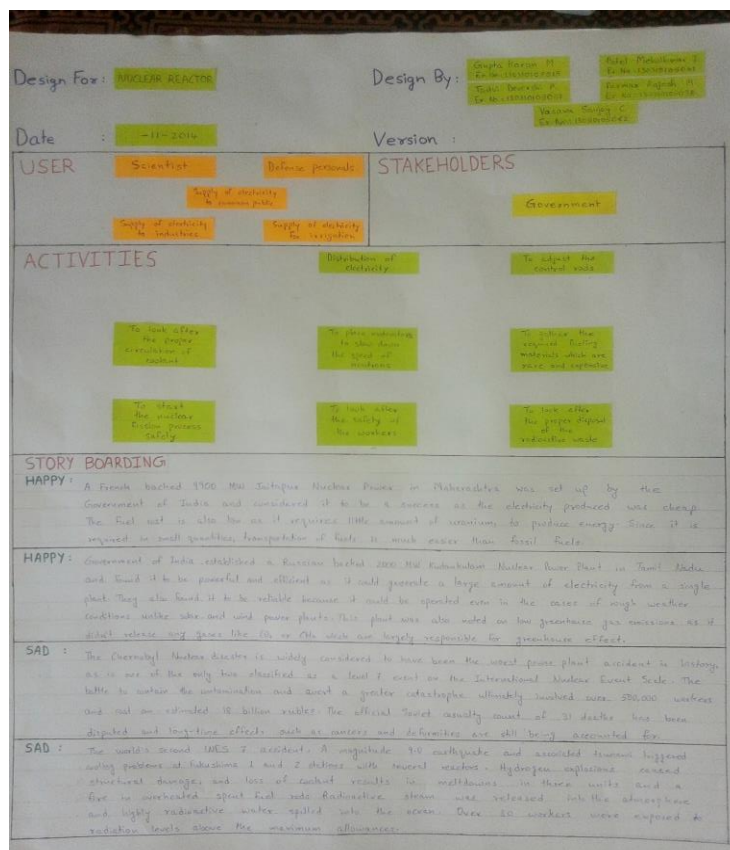 Design For: NUCLEAR REACTOR
Design By:
Gupta Karan M.
Patel
Joshi Devarshi A.
Parmar Rajesh M.
Vasava Sanjay C.
Date : -11-2014
Version :
USER
Scientist
Defense personals
Supply of electricity
to common public
Supply of electricity
to industries
Supply of electricity
for navigation
STAKEHOLDERS
Government
ACTIVITIES
Distribution of
electricity
To adjust the
control rods
To look after
the proper
circulation of
coolant
To place moderators
to slow down
the speed of
neutrons
To utilize the
required fueling
materials which are
rare and expensive
To start
the nuclear
fission process
safely
To look after
the safety of
the workers
To look after
the proper disposal
of the
radioactive waste
STORY BOARDING
HAPPY : A French backed 9900 MW Jaitapur Nuclear Power in Maharashtra was set up by the
Government of India and considered it to be a success as the electricity produced was cheap.
The fuel cost is also low as it requires little amount of uranium, to produce energy. Since it is
required in small quantities, transportation of fuels is much easier than fossil fuels.
HAPPY : Government of India established a Russian backed 2000 MW Kudankulam Nuclear Power Plant in Tamil Nadu
and found it to be powerful and efficient as it could generate a large amount of electricity from a single
plant. They also found it to be reliable because it could be operated even in the cases of rough weather
conditions unlike solar and wind power plants. This plant was also noted as low greenhouse gas emissions as it
didn't release any gases like CO₂ or CH₄ which are largely responsible for greenhouse effect.
SAD : The Chernobyl Nuclear disaster is widely considered to have been the worst power plant accident in history,
as is one of the only two classified as a level 7 event on the International Nuclear Event Scale. The
battle to contain the contamination and avert a greater catastrophe ultimately involved over 500,000 workers
and cost an estimated 18 billion rubles. The official Soviet casualty count of 31 deaths has been
disputed and long-time effects such as cancers and deformities are still being accounted for.
SAD : The world's second INES 7 accident. A magnitude 9.0 earthquake and associated tsunami triggered
cooling problems at Fukushima 1 and 2 stations with several reactors. Hydrogen explosions caused
structural damage, and loss of coolant results in meltdowns in three units and a
fire in overheated spent fuel rods. Radioactive steam was released into the atmosphere
and highly radioactive water spilled into the ocean. Over 20 workers were exposed to
radiation levels above the maximum allowances.